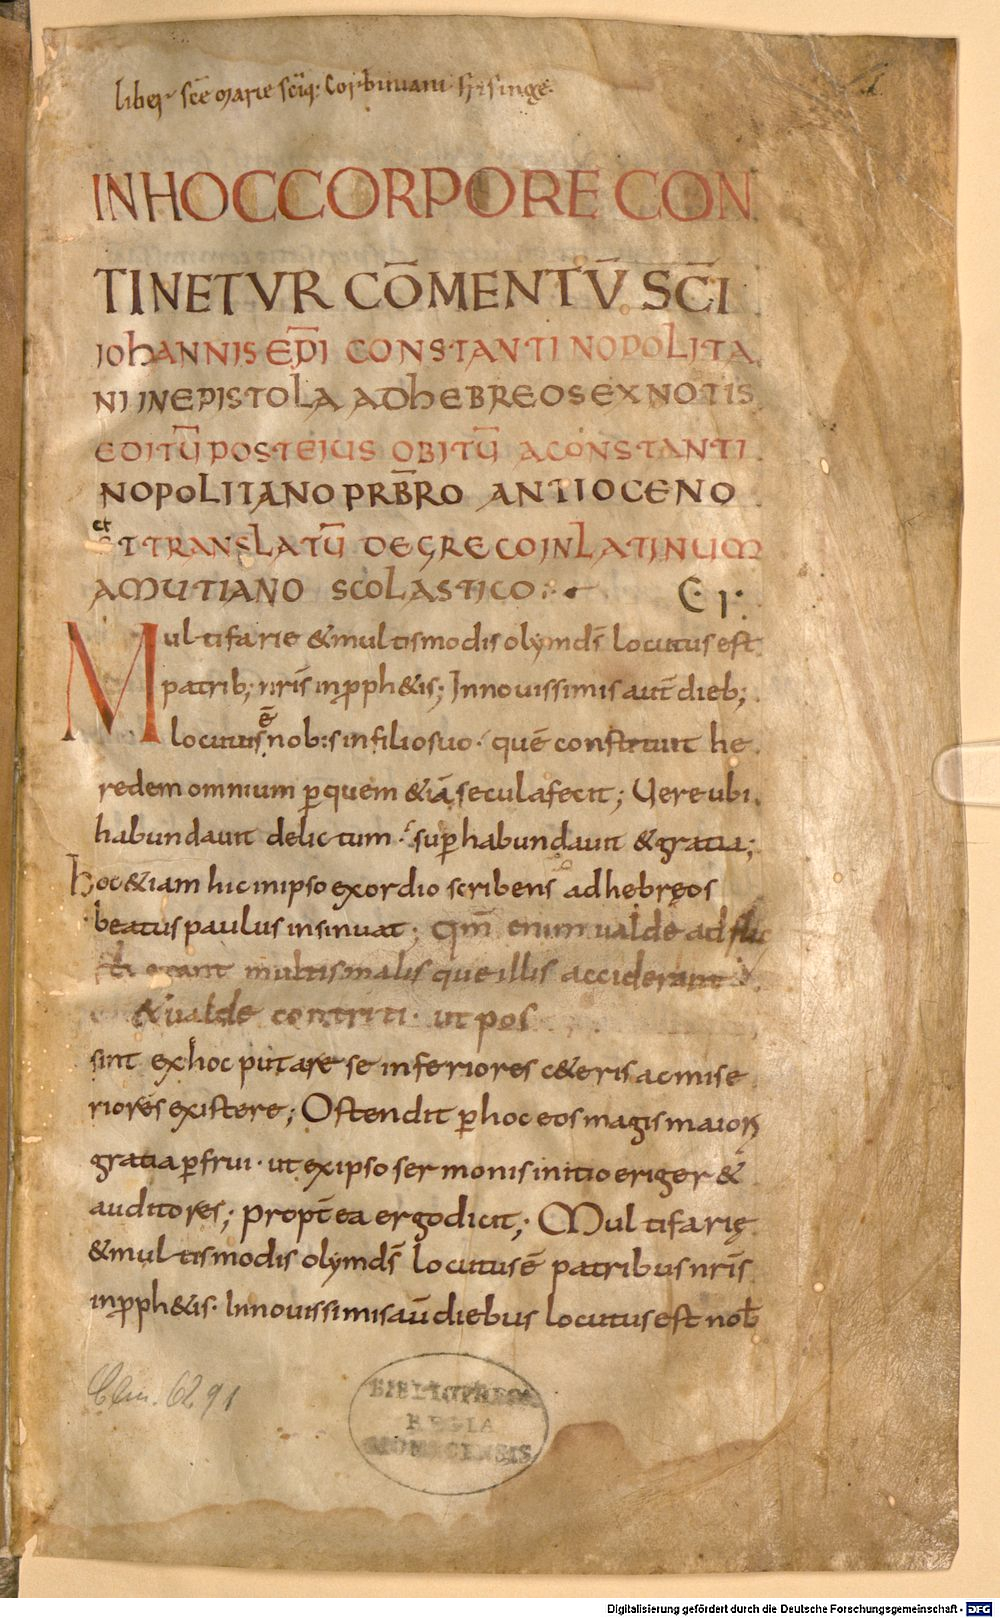 liber sc̄e marie sc̄iq: corbiniani frisinge.
1
IN HOC CORPORE CON
TINETVR CŌMENTV̄ SC̄I
IOHANNIS EP̄I CONSTANTINOPOLITA
NI IN EPISTOLA AD HEBREOS EX NOTIS
EDITŪ POST EIUS OBITŪ A CONSTANTI
NOPOLITANO PRB̄RO ANTIOCENO
et
ET TRANSLATŪ DE GRECO IN LATINUM
A MUTIANO SCOLASTICO
C. I.
Multifarie & multis modis olym ds̄ locutus est
patrib; nr̄is in pph&is; Innouissimis aut̄ dieb;
locutus ē nobis in filio suo. quē constituit he
redem omnium p̱ quem &iā secula fecit; Uere ubi
habundauit delictum. sup̱habundauit & gratia;
hoc &iam hic in ipso exordio scribens ad hebręos
beatus paulus insinuat. Qm̄ enim ualde adflic
ti erant multis malis que illis acciderant
& ualde contriti. ut pos
sint ex hoc putare se inferiores c&eris ac mise
riores existere; Ostendit p̱ hoc eos magis maiori
gratia p̱frui. ut ex ipso sermonis initio eriger&
auditores; propt̄ea ergo dicit; Multifarię
& multis modis olym ds̄ locutus ē patribus nr̄is
in pph&is. Innouissimis aū diebus locutus est nob̄
Clm. 6291
BIBLIOTHECA
REGIA
MONACENSIS.
Digitalisierung gefördert durch die Deutsche Forschungsgemeinschaft - DFG